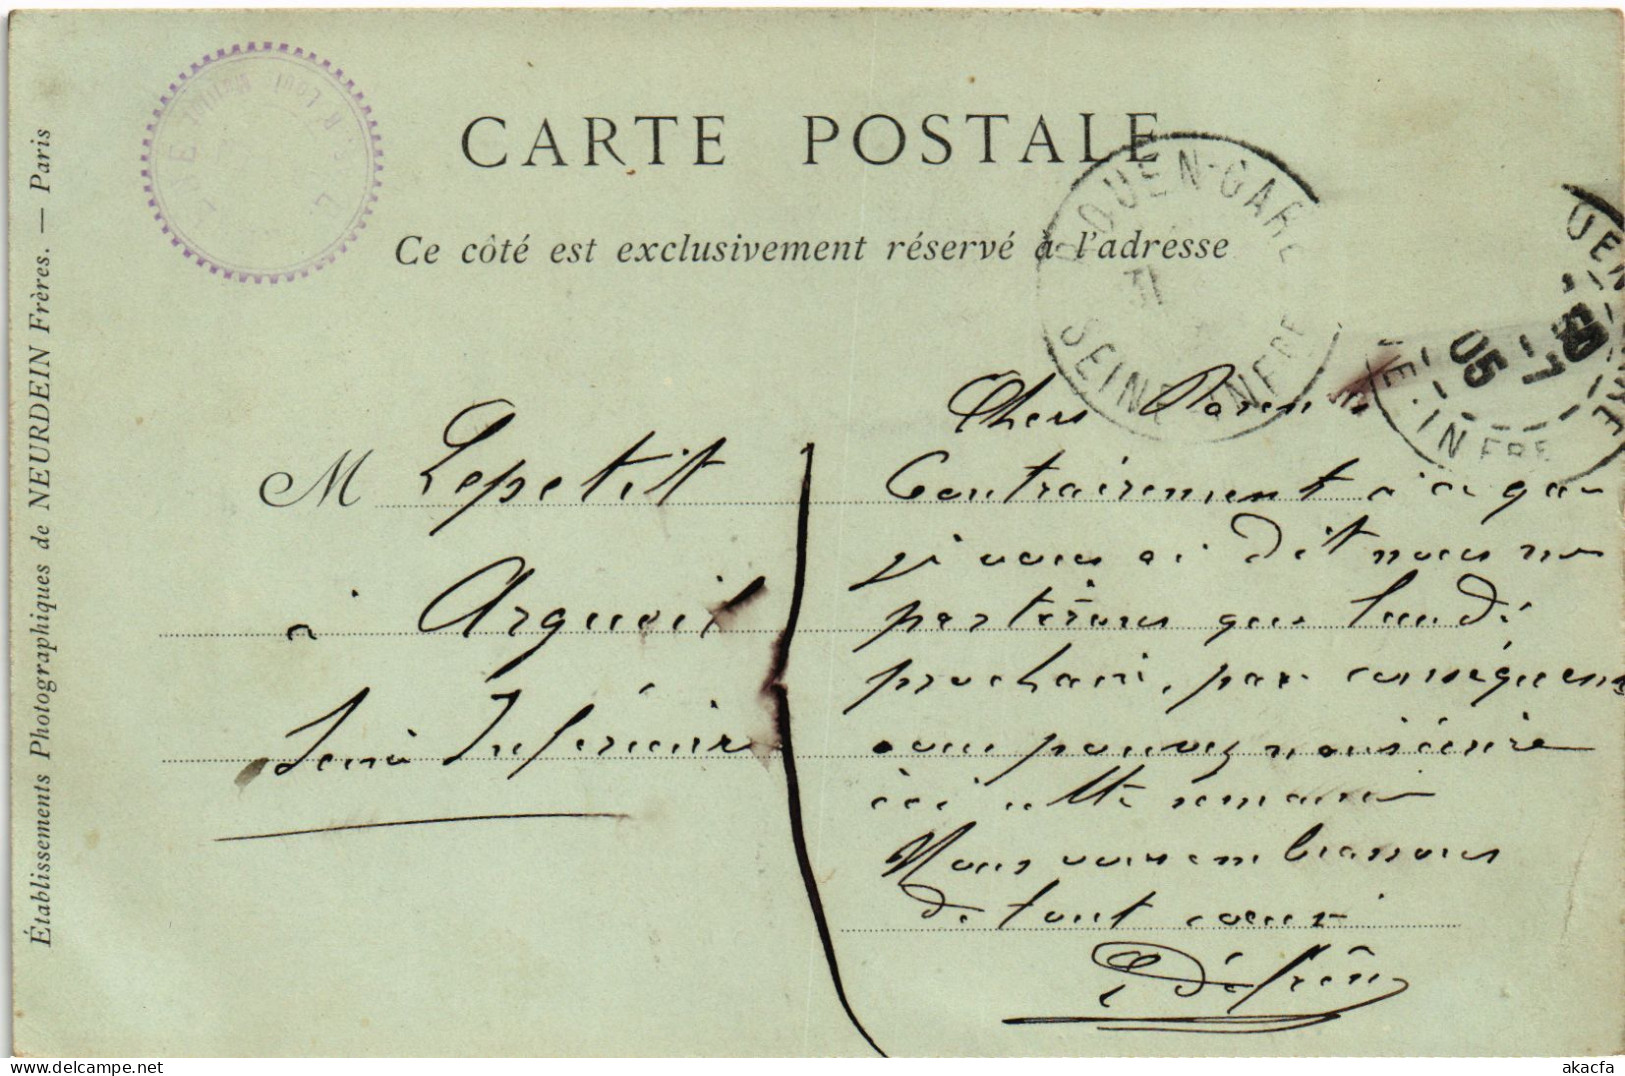 CARTE POSTALE
Ce côté est exclusivement réservé à l'adresse
Établissements Photographiques de NEURDEIN Frères. — Paris
ROUEN-GARE
31
SEINE INFRE
UEN GARE
7
05
IE. INFRE
M Lepetit
à Argueil
Seine Inférieure
Chers Parents
Contrairement à ce que
je vous ai dit nous ne
partirons que lundi
prochain, par conséquent
vous pouvez nous écrire
ici cette semaine
Nous vous embrassons
de tout coeur
akacfa